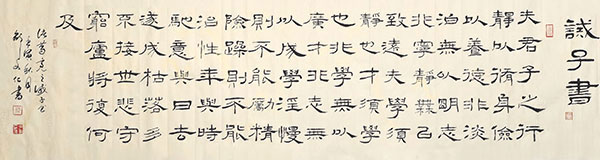 誡子書
夫君子之行
靜以脩身儉
以養德非淡
泊無以明志
非寧靜無以
致遠夫學須
靜也才須學
也非學無以
廣才非志無
以成學淫慢
則不能勵精
險躁則不能
治性年與時
馳意與日去
遂成枯落多
不接世悲守
窮廬將復何
及